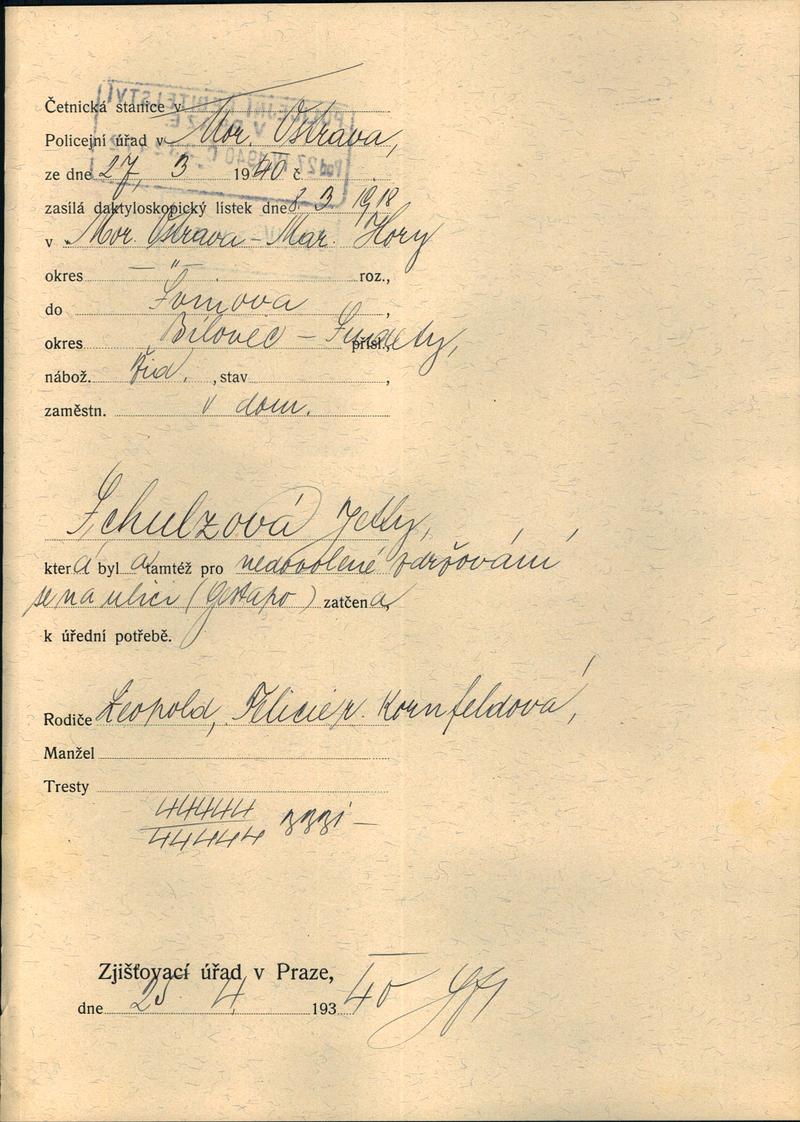 Četnická stanice v
Policejní úřad v Mor. Ostrava,
ze dne 27, 3 1940 č
zasílá daktyloskopický lístek dne 8. 3 1918
v Mor. Ostrava - Mar. Hory
okres — " — roz.,
do ,
okres Bílovec - Sudety, přísl.,
nábož. žid. , stav ,
zaměstn. v dom.
Schulzová Jetty,
která byla tamtéž pro nedovolené zdržování
se na ulici (Gestapo) zatčena,
k úřední potřebě.
Rodiče Leopold, Felicie r. Kornfeldová,
Manžel
Tresty
44444
44444
Zjišťovací úřad v Praze,
dne 25 4 193 40